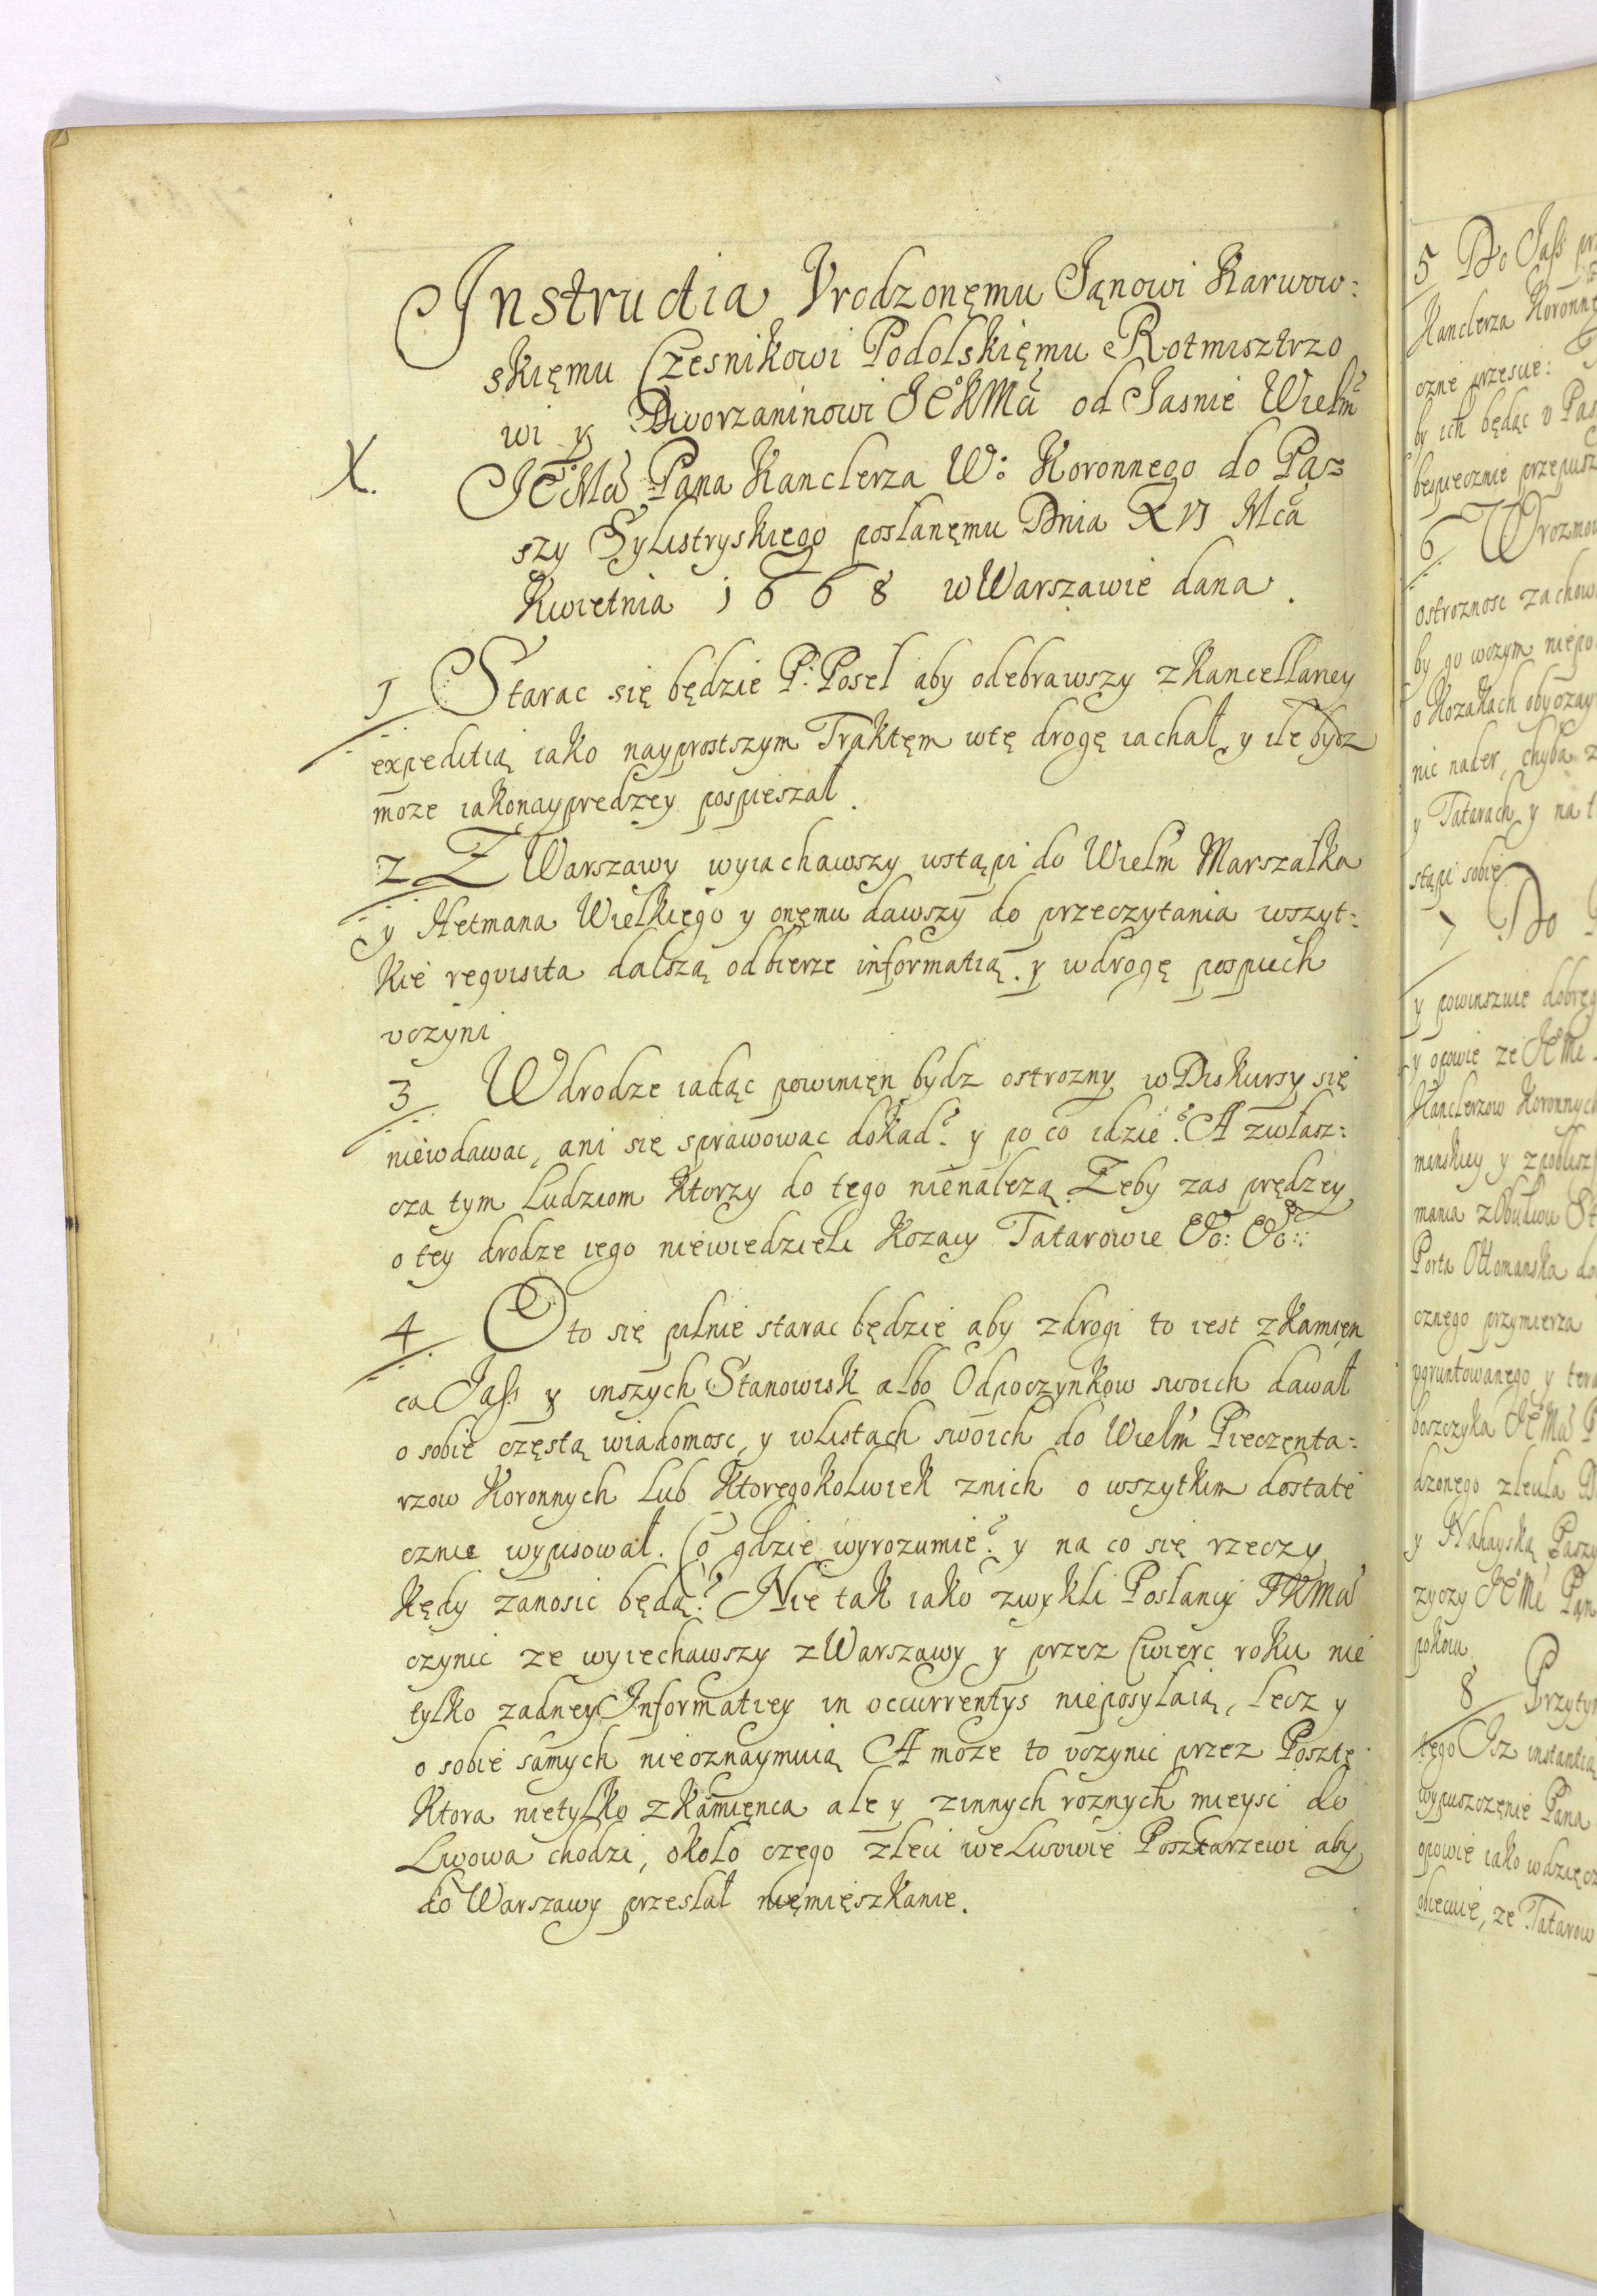 Instructia Vrodzonęmu Janowi Karwow:
skięmu Czesnikowi Podolskięmu Rotmisztrzo
wi y Dworzaninowi JĆKMci od Jasnie Wielm
X. JĆMci Pana Kanclerza W: Koronnego do Pa=
szy Sylistryskiego poslanęmu Dnia XVI Mca
Kwietnia 1668 w Warszawie dana.
1 Starac się będzie P: Posel aby odebrawszy z Kancellariey
expeditią iako nayprostszym Traktęm wtę drogę iachał y ile bydz
moze iakonayprędzey pospieszał.
2 Z Warszawy wyiachawszy wstąpi do Wielm Marszałka
y Hetmana Wielkięgo y onęmu dawszy do przeczytania wszyt:
kie requisita dalszą odbierze informatią. y wdrogę pospiech
vczyni
3 Wdrodze iadąc powinięn bydz ostrozny w Diskursy się
niewdawac, ani się sprawowac dokąd? y po co idzie? A zwłasz:
cza tym Ludziom Ktorzy do tego nienalezą Zeby zas prędzey
o tey drodze iego niewiedzieli Kozacy Tatarowie &c: &c:
4 O to się pilnie starac będzie aby zdrogi to iest z Kamięn
ca Jass y inszych Stanowisk albo Odpoczynkow swoich dawał
o sobie częstą wiadomosc, y wListach swoich do Wielm Pieczęnta:
rzow Koronnych Lub Ktoregokolwiek znich o wszytkim dostate
cznie wypisował. Co gdzie wyrozumie? y na co się rzeczy
kędy zanosic będą? Nie tak iako zwykli Poslancy JKMci
czynic ze wyiechawszy z Warszawy y przez Cwierc roku nie
tylko zadney Informatiey in occurrentys nieposyłaią, lecz y
o sobie samych nieoznaymuią A moze to vczynic przez Posztę
Ktora nietylko z Kamięnca ale y zinnych roznych mieysc do
Lwowa chodzi, około czego zleci we Lwowie Posztarzewi aby
do Warszawy przesłał niemięszkanie.
5 Do Jass
Kanclerza Koronne
by ich będąc v Pas
bespiecznie przepusz
6 Wrozmow
ostroznosc zachow
by go wczym niepo
o Kozakach obyczay
nic nader, chyba z
y Tatarach y na t
stąpi sobie
7 Do
y powinszuie dobręg
y opowie ze JĆMc
Kanclerzow Koronnych
Porta Ottomanska do
cznego przymierza
vgruntowanego y tera
y Nahayską Paszy
zyczy JĆMc Pan
pokoiu
8 Przyty
tego Jsz instantią
wypuszczęnie Pana
opowie iako wdzięcz
obiecuie, ze Tatarow